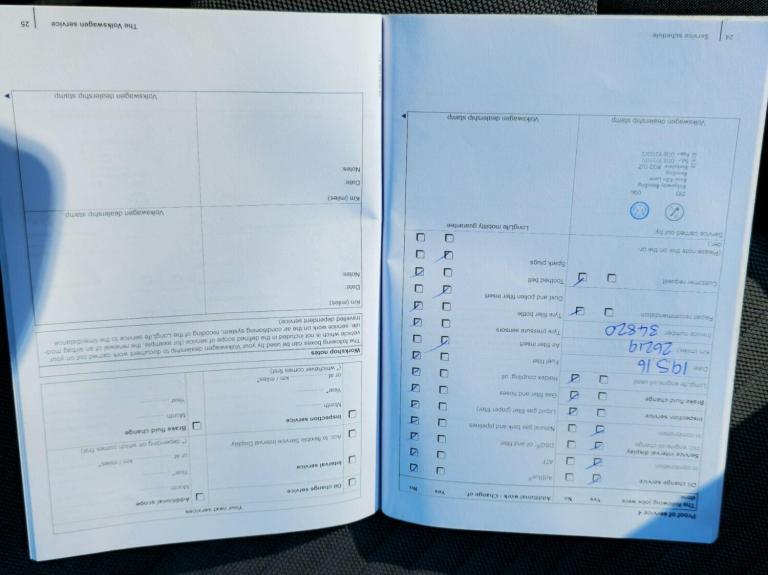 Proof of service 4
The following jobs were done
Yes
No
Additional work - Change of:
Yes
No
Oil change service
in combination
Service interval display
incl. engine oil change
in combination
Inspection service
Brake fluid change
LongLife engine oil used
Date
19 5 16
Km (miles)
26219
Invoice number
34820
Repair recommendation
Customer request
(Please note this on the
order.)
Service carried out by:
Volkswagen dealership stamp
AdBlue®
ATF
DSG® oil and filter
Natural gas tank and pipelines
Liquid gas filter
Gas filter and hoses
Haldex coupling oil
Fuel filter
Air filter insert
Tyre pressure sensors
Tyre filler bottle
Dust and pollen filter insert
Toothed belt
Spark plugs
LongLife mobility guarantee
Volkswagen dealership stamp
24
Service schedule
Your next services
Oil change service
Interval service
Acc. to flexible Service Interval Display
Inspection service
Additional scope
Month
Year
or at
km / miles*
(* depending on which comes first)
Brake fluid change
Month
Year
Month
Year
or at
km / miles*
(* whichever comes first)
Workshop notes
The following boxes can be used by your Volkswagen dealership to document work carried out on your
vehicle which is not included in the defined scope of service (for example, the renewal of an airbag mod-
ule, service work on the air conditioning system, recoding of the LongLife service to the time/distance
travelled dependent service)
Km (miles):
Date:
Notes:
Volkswagen dealership stamp
Km (miles):
Date:
Notes:
Volkswagen dealership stamp
The Volkswagen service
25